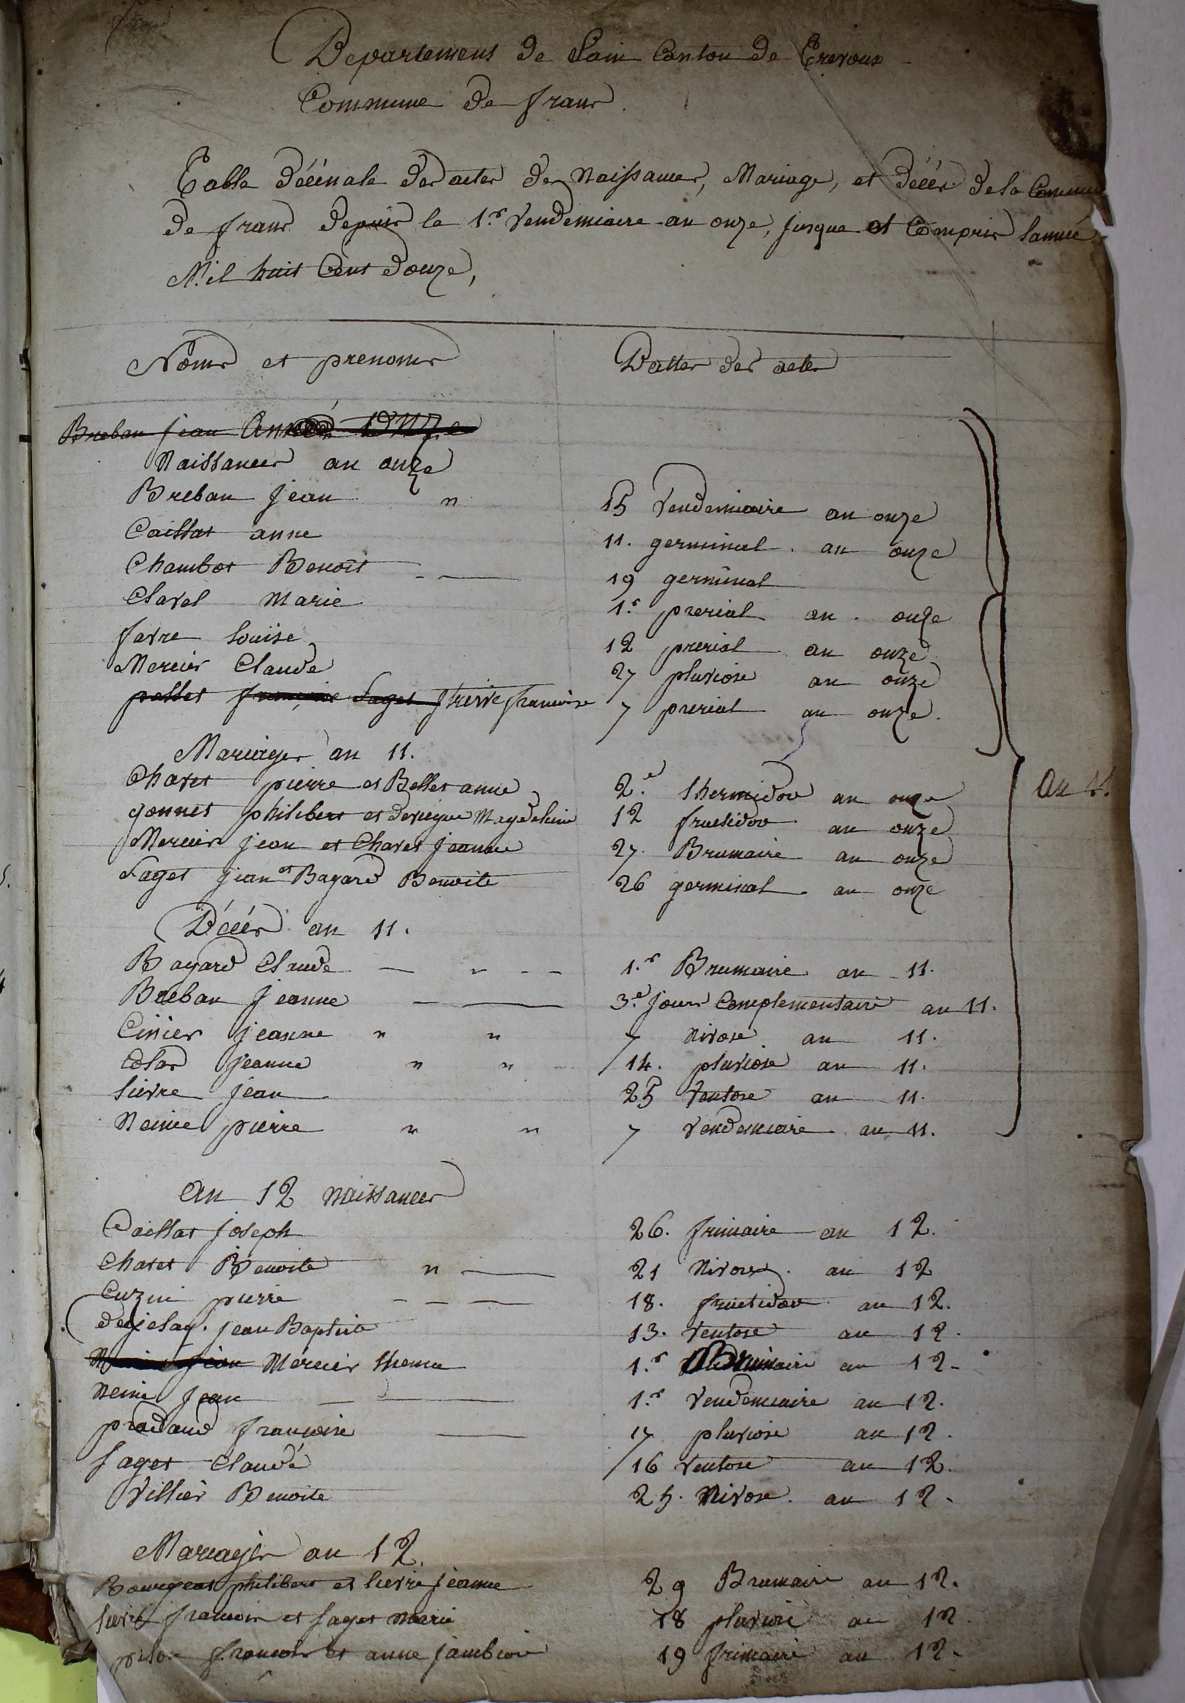 Departement de Lain Canton de Trevoux
Commune de frans
Table décénale des actes de Naissances, Mariage, et décès de la Commune
de frans depuis le 1.r Vendemiaire an onze, jusque et Compris lannée
Mil huit Cent douze,
Noms et prenoms Dattes des actes
Breban jean Année onze
Naissances an onze
Breban jean " 15 Vendemiaire an onze
Caillat anne 11. germinal an onze
Chambot Benoit 19 germinal
Clavel Marie 1.r prerial an onze
favre Louise 12 prerial an onze
Mercier Claude 27 pluviose an onze
pollet françoise Saget pierre francoise 7 prerial an onze.
Mariages an 11.
Chavet pierre et Bellet anne 2.e thermidor an onze
gonnet philibert et Magdeleine 12 fructidor an onze
Mercier jean et Chavet jeanne 27 Brumaire an onze
Saget jean et Bayard Benoite 26 germinal an onze
an 11.
Décès an 11.
Bayard Claude " 1.r Brumaire an 11.
Breban jeanne 3.e jours Complementaire an 11.
Cinier jeanne " " 7 nivose an 11.
Colas jeanne " " 14. pluviose an 11.
Lievre jean 25 Ventose an 11.
Neime pierre " " 7 Vendemiaire an 11.
an 12 naissances
Caillat joseph 26. frimaire an 12.
Chavet Benoite " 21 Nivose an 12
Cuzin pierre 18. fructidor an 12.
jean Baptiste 13. Ventose an 12.
jean Mercier 1.r Brumaire an 12
jean 1.r Vendemiaire an 12.
pradaud francoise 17 pluviose an 12.
Saget Claude 16 Ventose an 12.
Villier Benoite 25. Nivose an 12.
Mariages an 12.
Bourgeat philibert et Lievre jeanne 29 Brumaire an 12.
Lievre francois et Saget Marie 18 pluviose an 12
francois et anne 19 frimaire an 12.